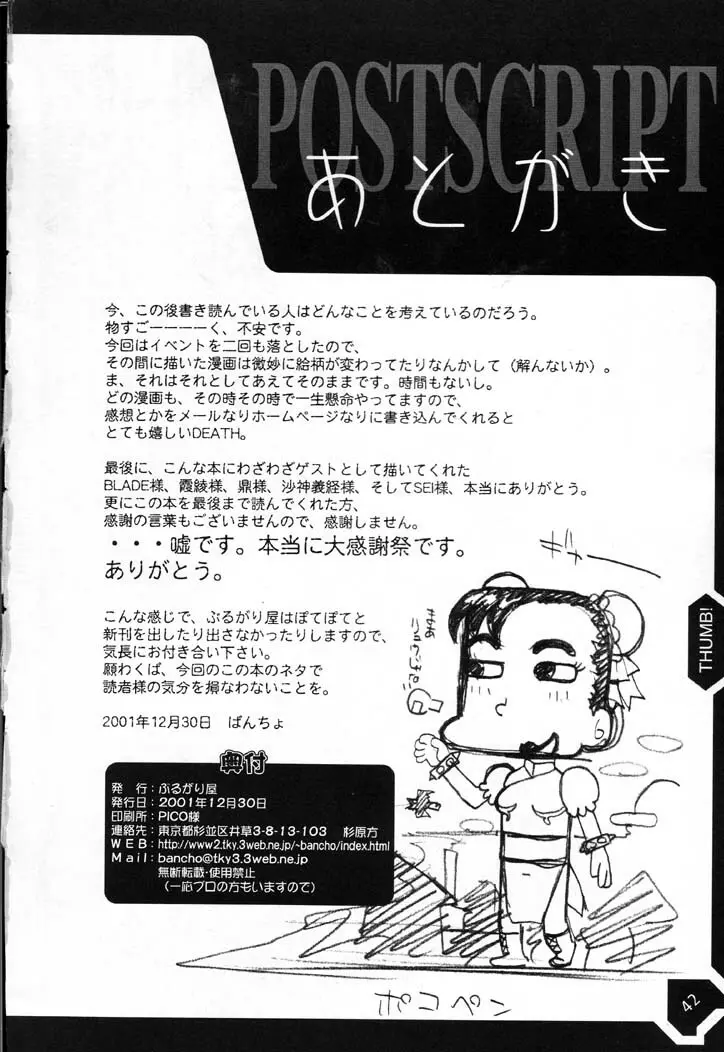 POSTSCRIPT
あとがき
今、この後書き読んでいる人はどんなことを考えているのだろう。
物すごーーーーく、不安です。
今回はイベントを二回も落としたので、
その間に描いた漫画は微妙に絵柄が変わってたりなんかして（解んないか）。
ま、それはそれとしてあえてそのままです。時間もないし。
どの漫画も、その時その時で一生懸命やってますので、
感想とかをメールなりホームページなりに書き込んでくれると
とても嬉しいDEATH。
最後に、こんな本にわざわざゲストとして描いてくれた
BLADE様、霞綾様、鼎様、沙神義経様、そしてSEI様、本当にありがとう。
更にこの本を最後まで読んでくれた方、
感謝の言葉もございませんので、感謝しません。
・・・嘘です。本当に大感謝祭です。
ありがとう。
こんな感じで、ぶるがり屋はぽてぽてと
新刊を出したり出さなかったりしますので、
気長にお付き合い下さい。
願わくば、今回のこの本のネタで
読者様の気分を損なわないことを。
2001年12月30日　ばんちょ
奥付
発　行：ぶるがり屋
発行日：2001年12月30日
印刷所：PICO様
連絡先：東京都杉並区井草3-8-13-103　杉原方
ＷＥＢ：http://www2.tky.3web.ne.jp/~bancho/index.html
Ｍail：bancho@tky3.3web.ne.jp
無断転載・使用禁止
（一応プロの方もいますので）
ポコペン
THUMB!
42